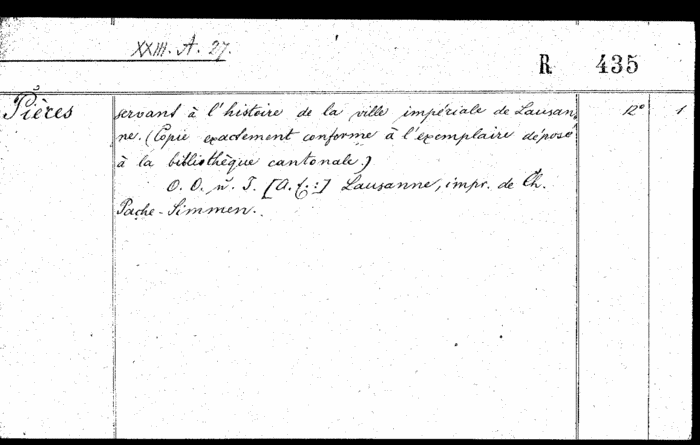 XXIII. A. 27.
R 435
Pièces servant à l'histoire de la ville impériale de Lausan- 12° 1
ne. (Copie exactement conforme à l'exemplaire déposé
à la bibliothèque cantonale.)
O. O. u. J. [A. E.:] Lausanne, impr. de Ch.
Pache-Simmen.